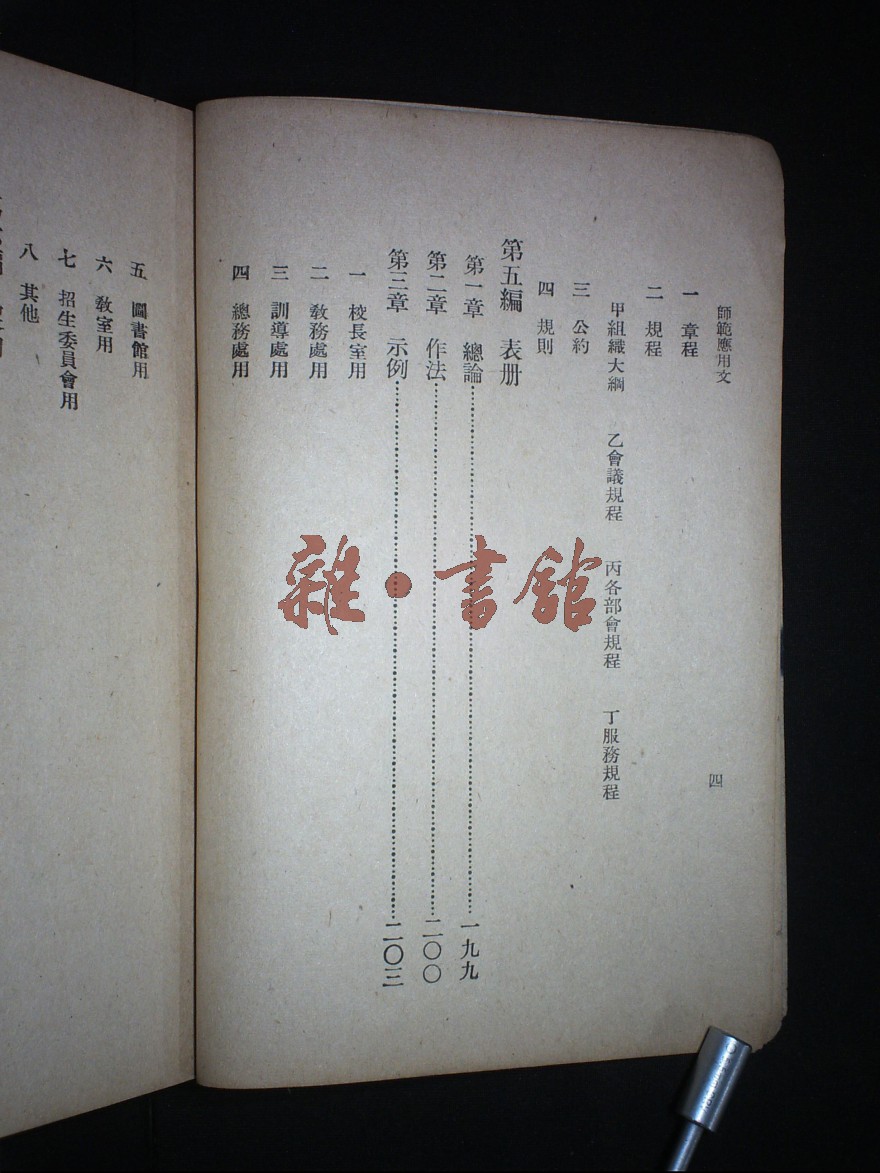 師範應用文
四
一 章程
二 規程
甲組織大綱 乙會議規程 丙各部會規程 丁服務規程
三 公約
四 規則
第五編 表册
第一章 總論……一九九
第二章 作法……二〇〇
第三章 示例……二〇三
一 校長室用
二 敎務處用
三 訓導處用
四 總務處用
五 圖書館用
六 敎室用
七 招生委員會用
八 其他
雜·書館